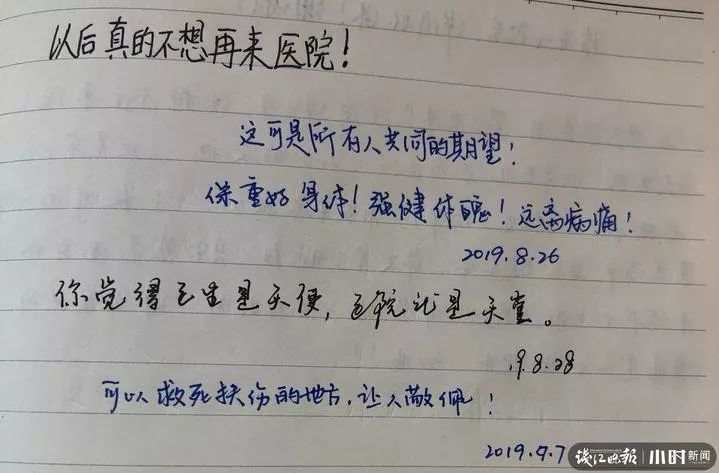 以后真的不想再来医院！
这可是所有人共同的期望！
保重好身体！强健体魄！远离病痛！
2019.8.26
你觉得医生是天使，医院就是天堂。
19.8.28
可以救死扶伤的地方，让人敬佩！
2019.9.7
钱江晚报 小时新闻